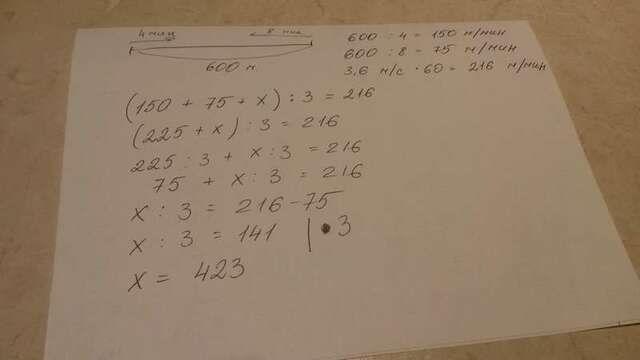 4 мин
8 мин
600 м
600 : 4 = 150 м/мин
600 : 8 = 75 м/мин
3,6 м/с · 60 = 216 м/мин
(150 + 75 + x) : 3 = 216
(225 + x) : 3 = 216
225 : 3 + x : 3 = 216
75 + x : 3 = 216
x : 3 = 216 - 75
x : 3 = 141 | · 3
x = 423